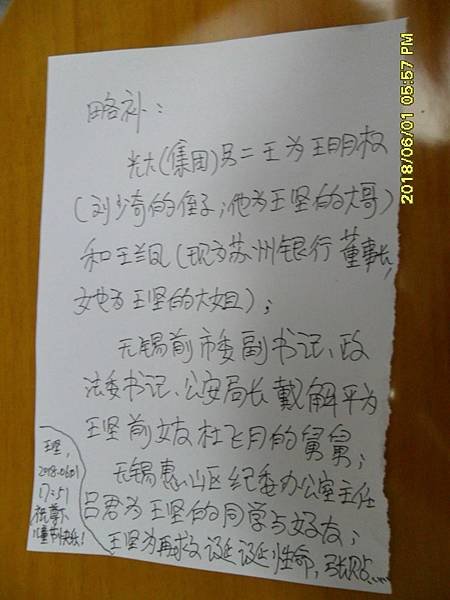 略补：
光大(集团)另二王为王明权
(刘少奇的侄子；他为王坚的大哥)
和王兰凤(现为苏州银行董事长，
她为王坚的大姐)；
无锡前市委副书记、政
法委书记、公安局长戴解平为
王坚前女友杜飞月的舅舅；
无锡惠山区纪委办公室主任
吕君为王坚的同学与好友；
王坚为再救诞诞性命，张贴……
王坚，
2018.06.01
17:51
祝尊下
儿童节快乐！
2018/06/01 05:57 PM